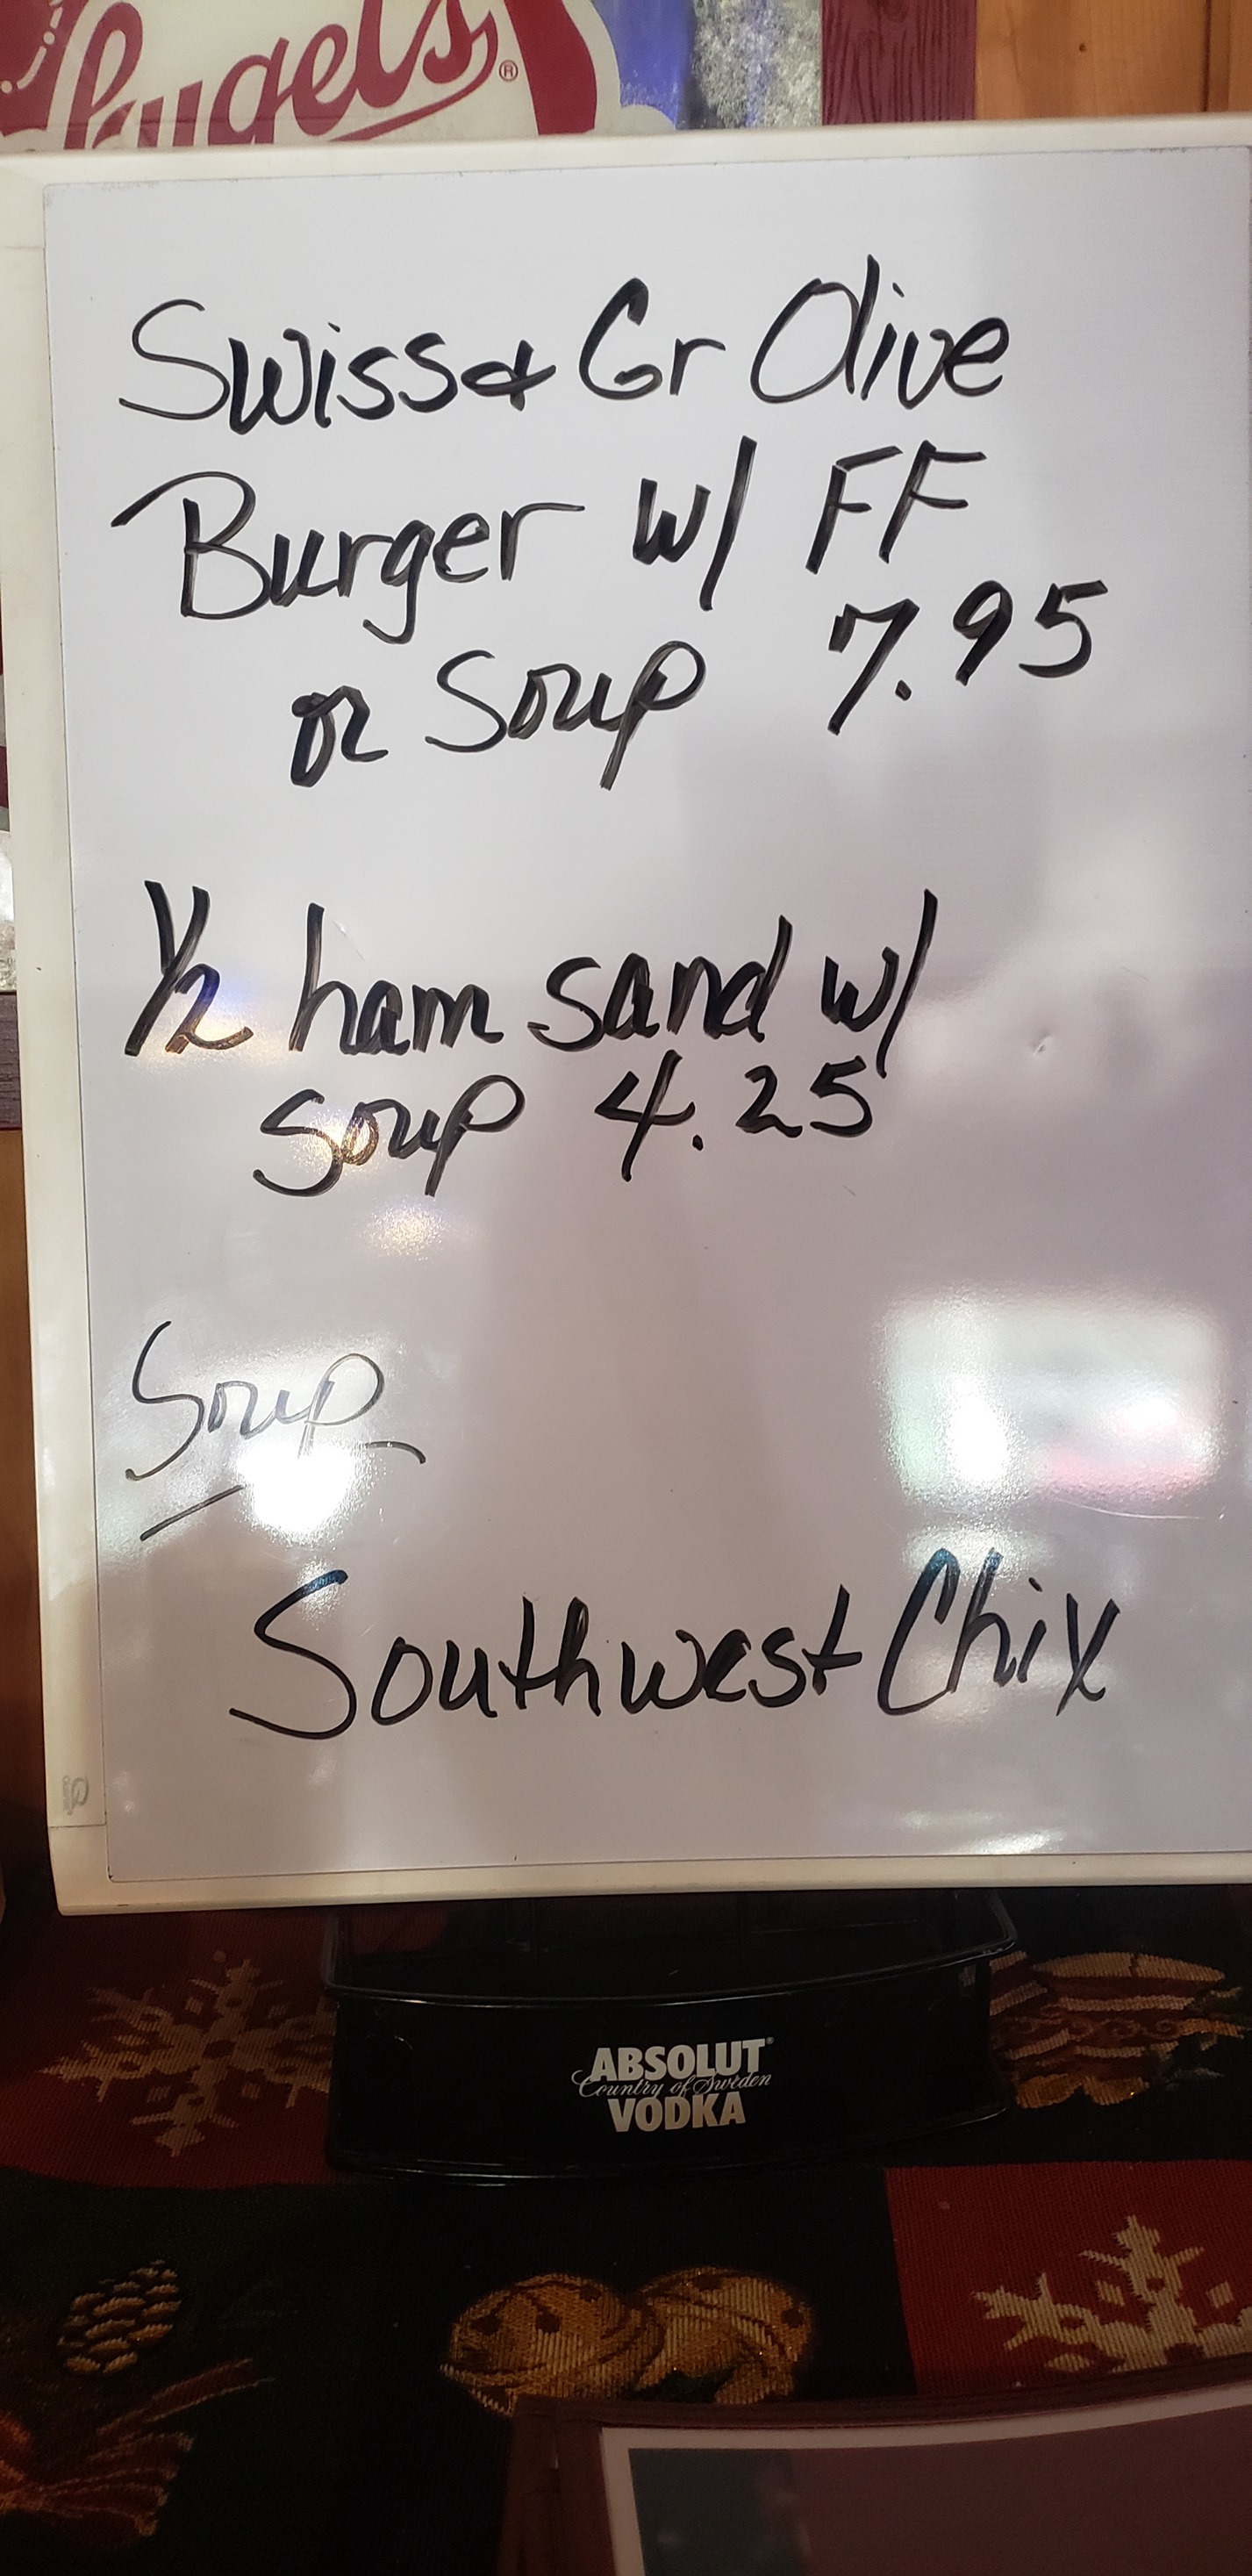 Kugel's®
Swiss & Gr Olive
Burger w/ FF
or Soup 7.95
1/2 ham sand w/
soup 4.25
Soup
Southwest Chix
ABSOLUT®
Country of Sweden
VODKA